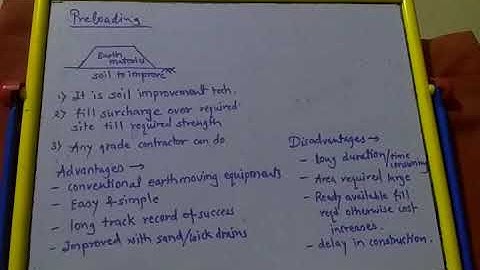 Preloading
Earth
material
soil to improve
1) It is soil improvement tech.
2) fill surcharge over required
site till required strength
3) Any grade contractor can do
Advantages →
- conventional earthmoving equipments
- Easy & simple
- long track record of success
- Improved with sand/wick drains
Disadvantages →
- long duration/time
consuming
- Area required large
- Ready available fill
reqd otherwise cost
increases.
- delay in construction.